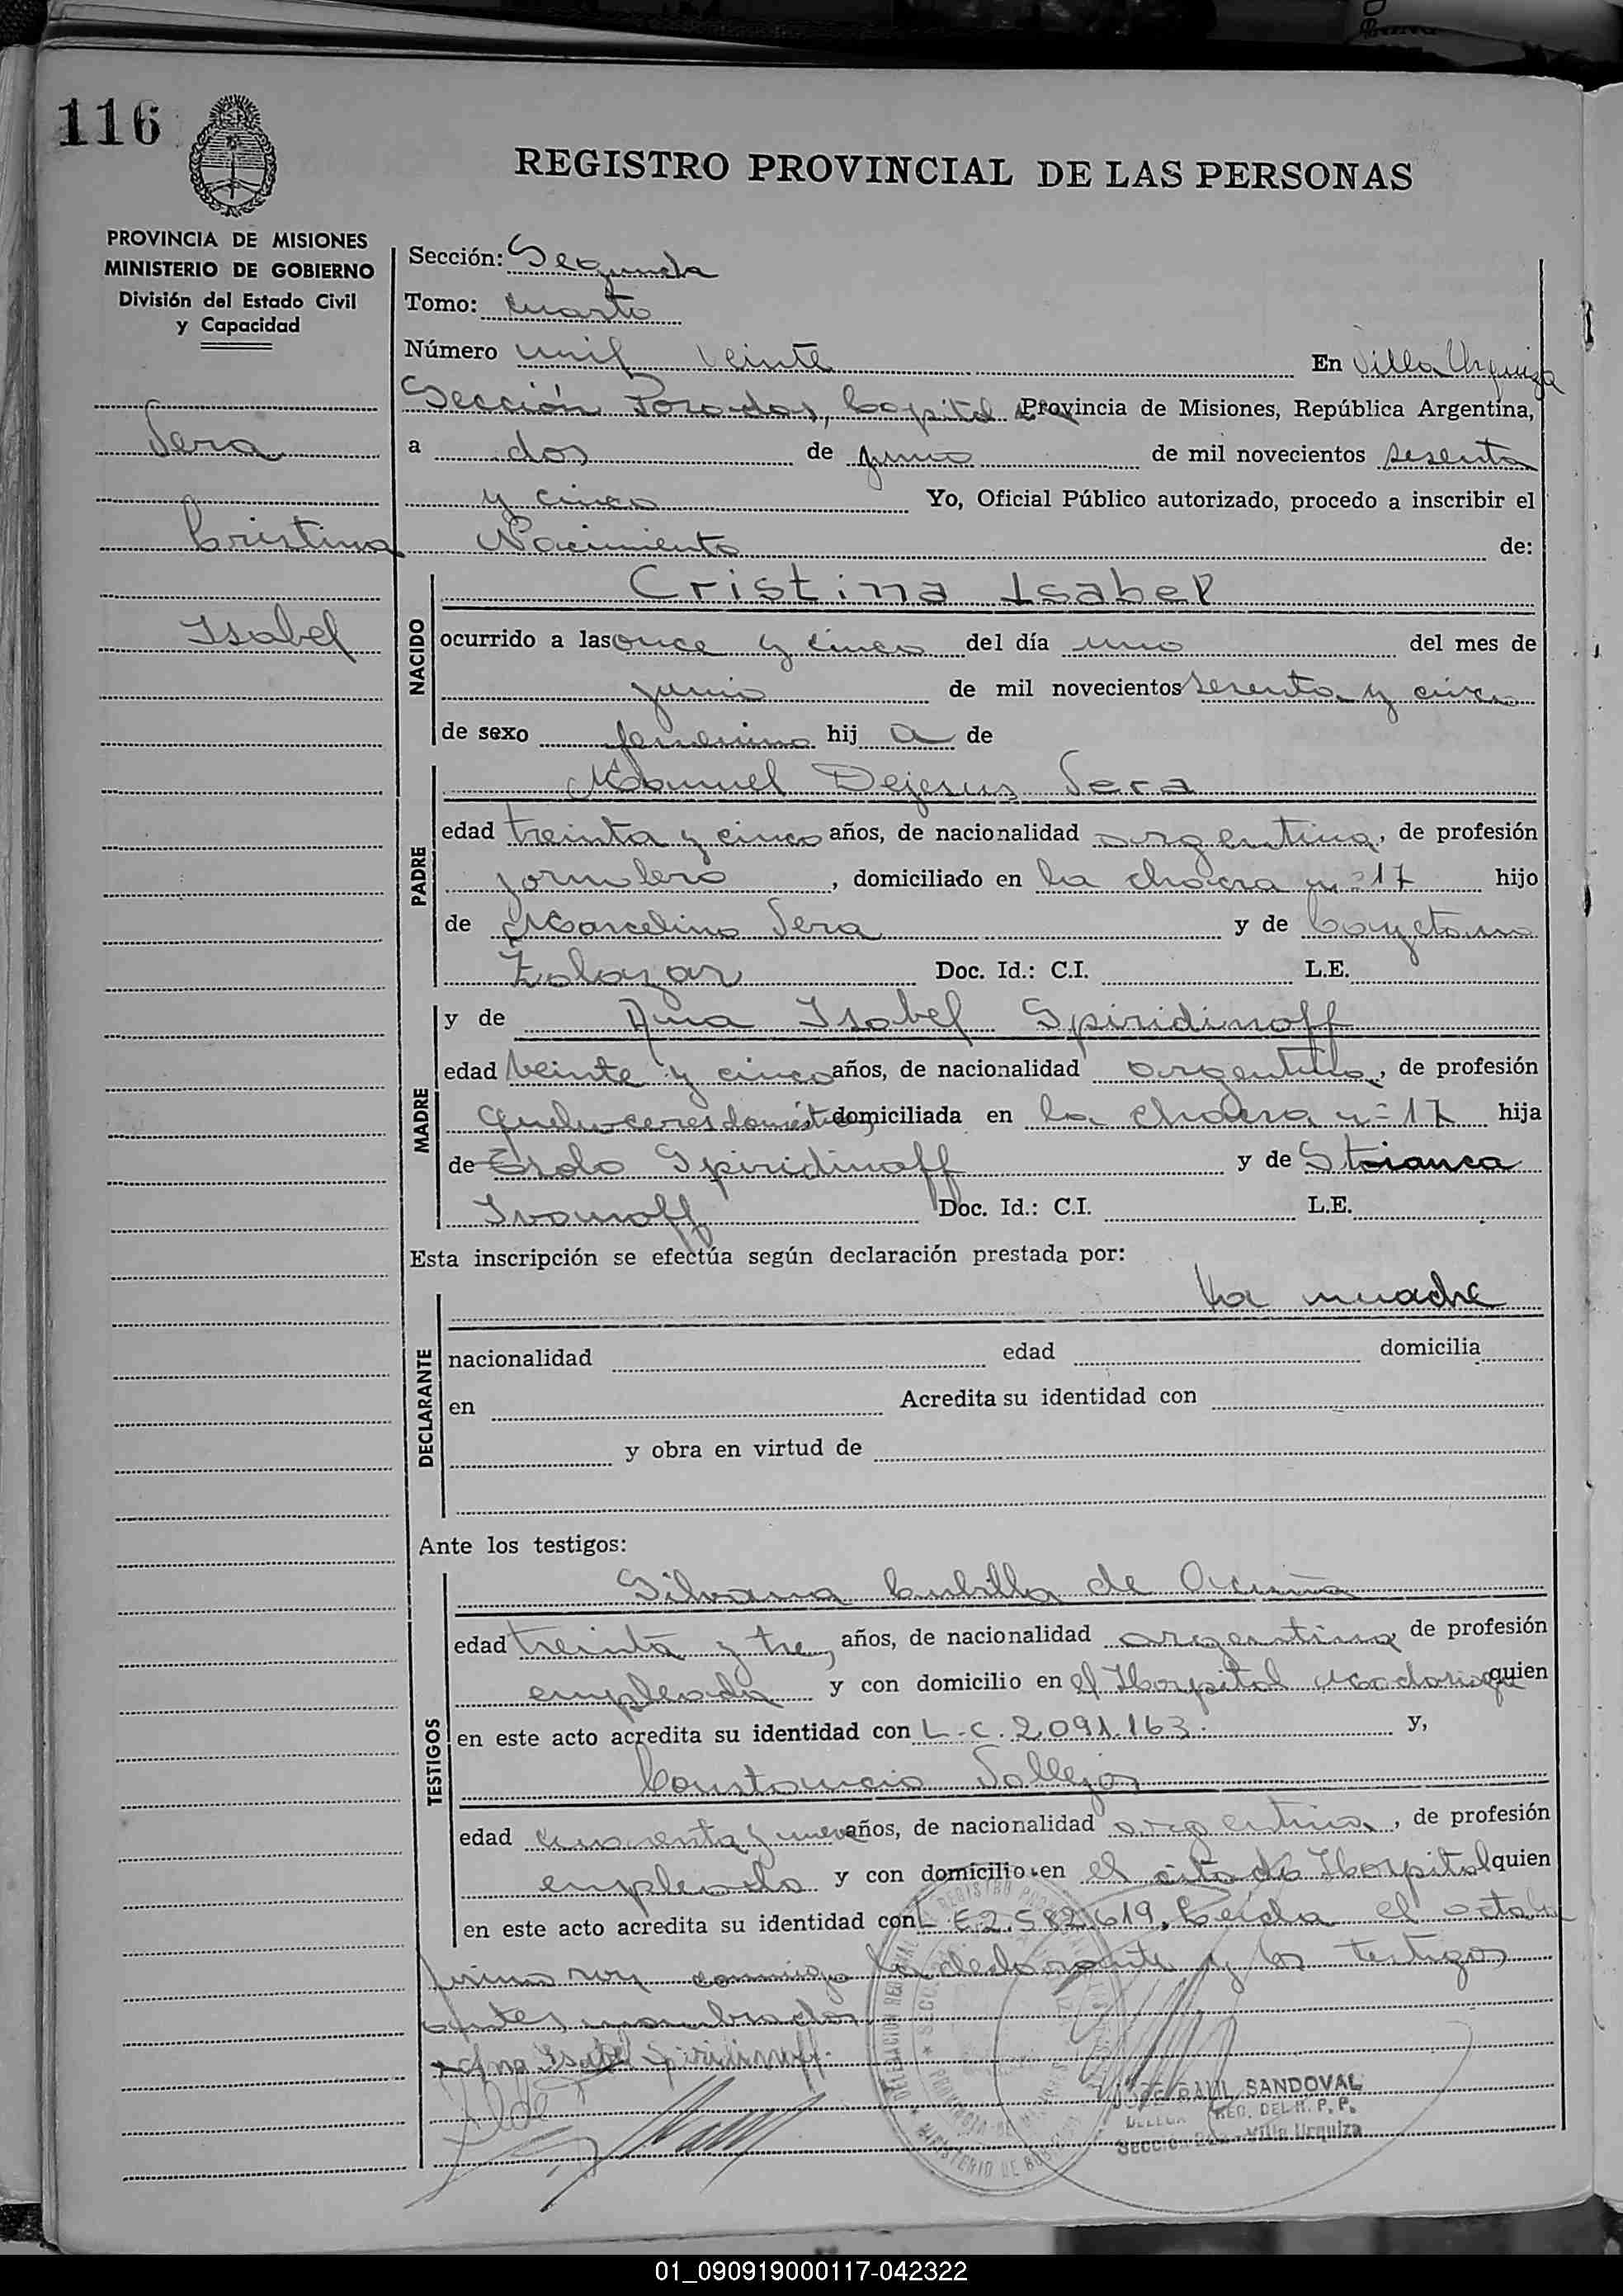 116
REGISTRO PROVINCIAL DE LAS PERSONAS
PROVINCIA DE MISIONES
MINISTERIO DE GOBIERNO
División del Estado Civil
y Capacidad
Vera
Cristina
Isabel
Sección: Segunda
Tomo: Cuarto
Número mil veinte En Villa Urquiza
Sección Posadas, Capital Provincia de Misiones, República Argentina,
a dos de junio de mil novecientos sesenta
y cinco Yo, Oficial Público autorizado, procedo a inscribir el
Nacimiento de:
NACIDO
Cristina Isabel
ocurrido a las once y cinco del día uno del mes de
junio de mil novecientos sesenta y cinco
de sexo femenino hij a de
PADRE
Manuel Dejesus Vera
edad treinta y cinco años, de nacionalidad argentina, de profesión
jornalero, domiciliado en la chacra nº 17 hijo
de Marcelino Vera y de Cayetana
Zalazar Doc. Id.: C.I. L.E.
MADRE
y de Ana Isabel Spiridinoff
edad veinte y cinco años, de nacionalidad argentina, de profesión
quehaceres domésticos, domiciliada en la chacra nº 17 hija
de Spiridinoff y de Stoianca
Ivanoff Doc. Id.: C.I. L.E.
Esta inscripción se efectúa según declaración prestada por:
DECLARANTE
La madre
nacionalidad edad domicilia
en Acredita su identidad con
y obra en virtud de
Ante los testigos:
TESTIGOS
Silvana Cubilla de Acuña
edad treinta y tres años, de nacionalidad argentina, de profesión
empleada y con domicilio en el Hospital Madariaga quien
en este acto acredita su identidad con L.C. 2.091.163. y,
Constancio Vallejos
edad años, de nacionalidad argentina, de profesión
empleado y con domicilio en el citado Hospital quien
en este acto acredita su identidad con L E 2.582.619. Leida el acta la
firman conmigo la declarante y los testigos
antes nombrados
Ana Isabel Spiridinoff.
JOSE RAUL SANDOVAL
REG. DEL R. P. P.
Sección 2da - Villa Urquiza
01_090919000117-042322